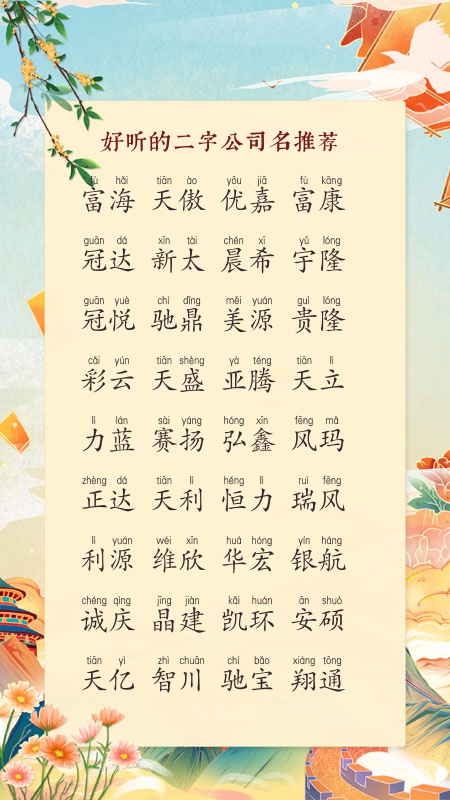 好听的二字公司名推荐
fù hǎi tiān ào yōu jiā fù kāng
富海 天傲 优嘉 富康
guān dá xīn tài chén xī yǔ lóng
冠达 新太 晨希 宇隆
guān yuè chí dǐng měi yuán guì lóng
冠悦 驰鼎 美源 贵隆
cǎi yún tiān shèng yà téng tiān lì
彩云 天盛 亚腾 天立
lì lán sài yáng hóng xīn fēng mǎ
力蓝 赛扬 弘鑫 风玛
zhèng dá tiān lì héng lì ruì fēng
正达 天利 恒力 瑞风
lì yuán wéi xīn huá hóng yín háng
利源 维欣 华宏 银航
chéng qìng jīng jiàn kǎi huán ān shuò
诚庆 晶建 凯环 安硕
tiān yì zhì chuān chí bǎo xiáng tōng
天亿 智川 驰宝 翔通